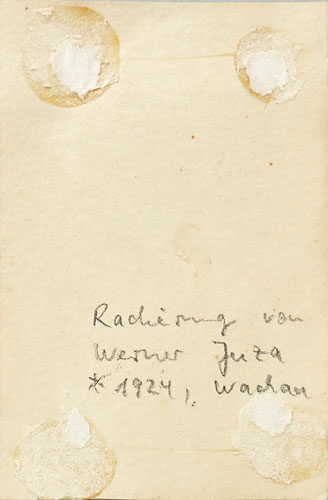 Radierung von
Werner Juza
* 1924, Wachau